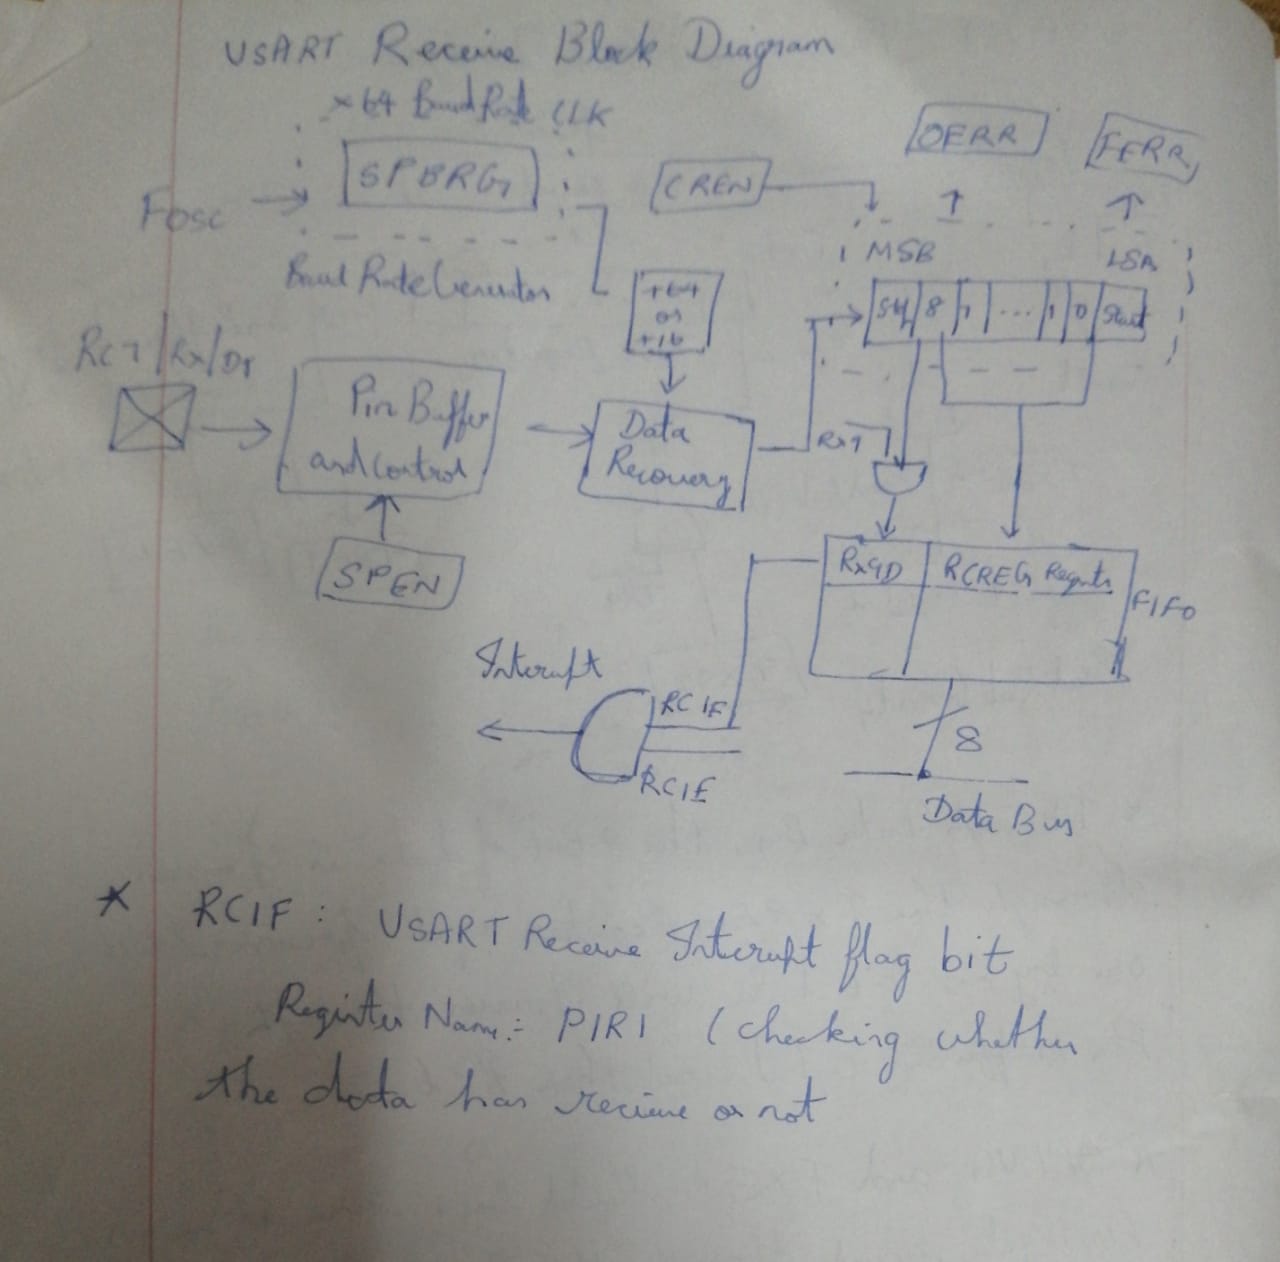 USART Receive Block Diagram
x64 Baud Rate CLK
OERR
FERR
SPBRG
CREN
Fosc
MSB
LSB
Baud Rate Generator
÷64
or
÷16
8 7 ... 1 0 Start
RC7/Rx/DT
Pin Buffer
and control
Data
Recovery
RX9
SPEN
Rx9D
RCREG
FIFO
Interupt
RCIF
RCIE
8
Data Bus
* RCIF : USART Receive Interupt flag bit
Register Name:- PIR1 (checking whether
the data has recieve or not